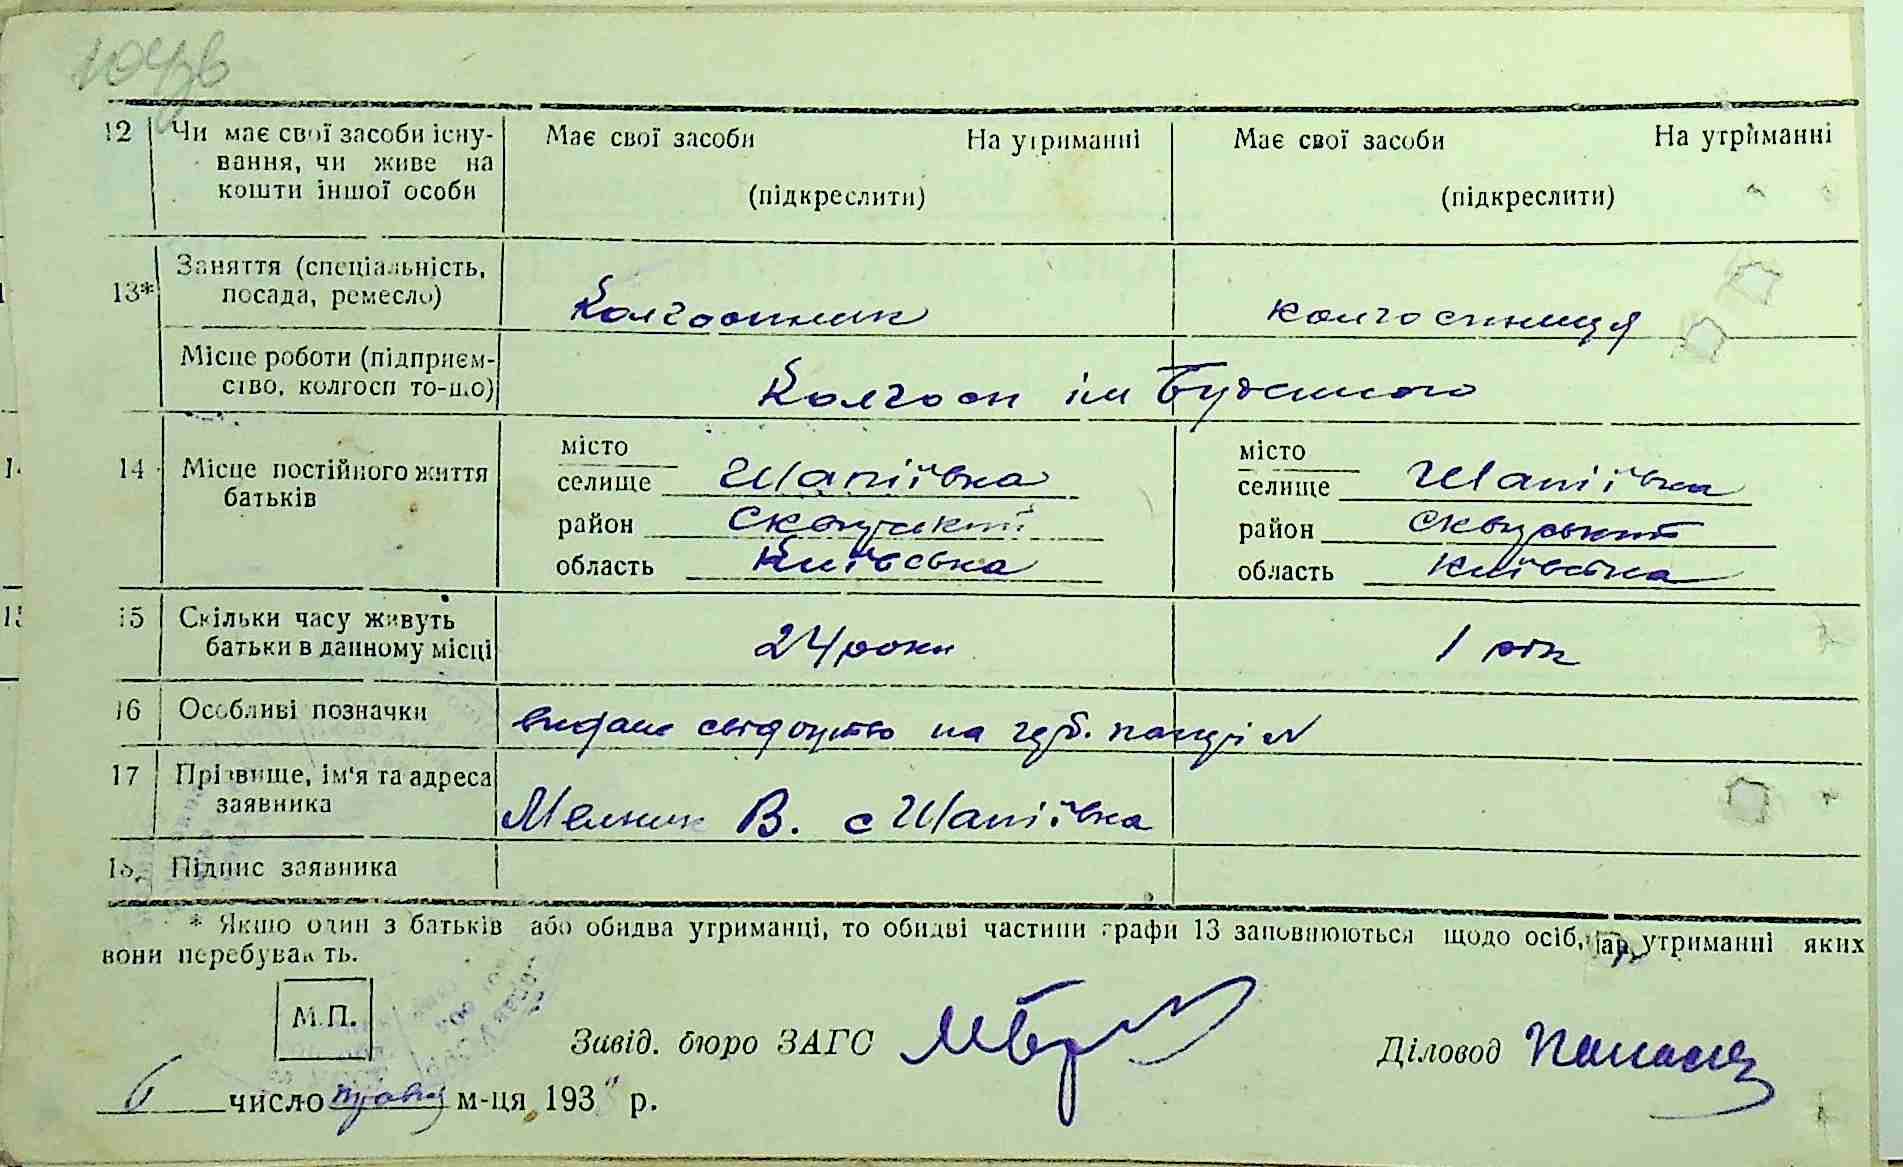 12 Чи має свої засоби існу- Має свої засоби На утриманні Має свої засоби На утриманні
вання, чи живе на
кошти іншої особи (підкреслити) (підкреслити)
13* Заняття (спеціальність,
посада, ремесло) Колгоспник колгоспниця
Місце роботи (підприєм-
ство, колгосп то-що) Колгосп ім Буденного
14 Місце постійного життя батьків
місто місто
селище Шапіївка селище Шапіївка
район Сквирський район Сквирський
область Київська область Київська
15 Скільки часу живуть
батьки в данному місці 24 роки 1 рік
16 Особливі позначки видане свідоцтво на
17 Прізвище, ім'я та адреса
заявника Мельник В. с Шапіївка
18. Підпис заявника
* Якщо один з батьків або обидва утриманці, то обидві частини графи 13 заповнюються щодо осіб, на утриманні яких
вони перебувають.
М.П.
Завід. бюро ЗАГС Діловод
6 число травня м-ця 193 р.